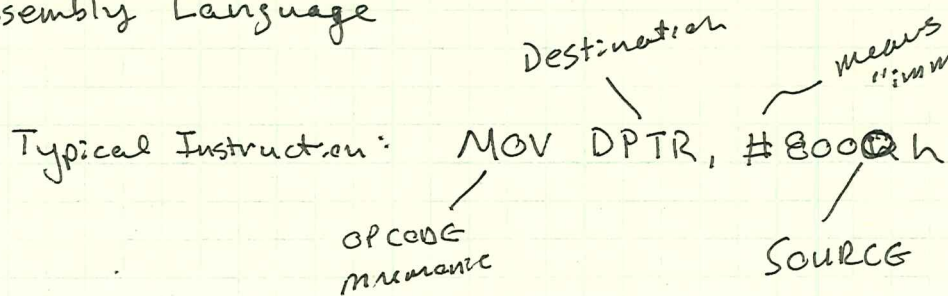 sembly Language
Destination
means
"imm
Typical Instruction: MOV DPTR, #8000h
OPCODE
mnemonic
SOURCE